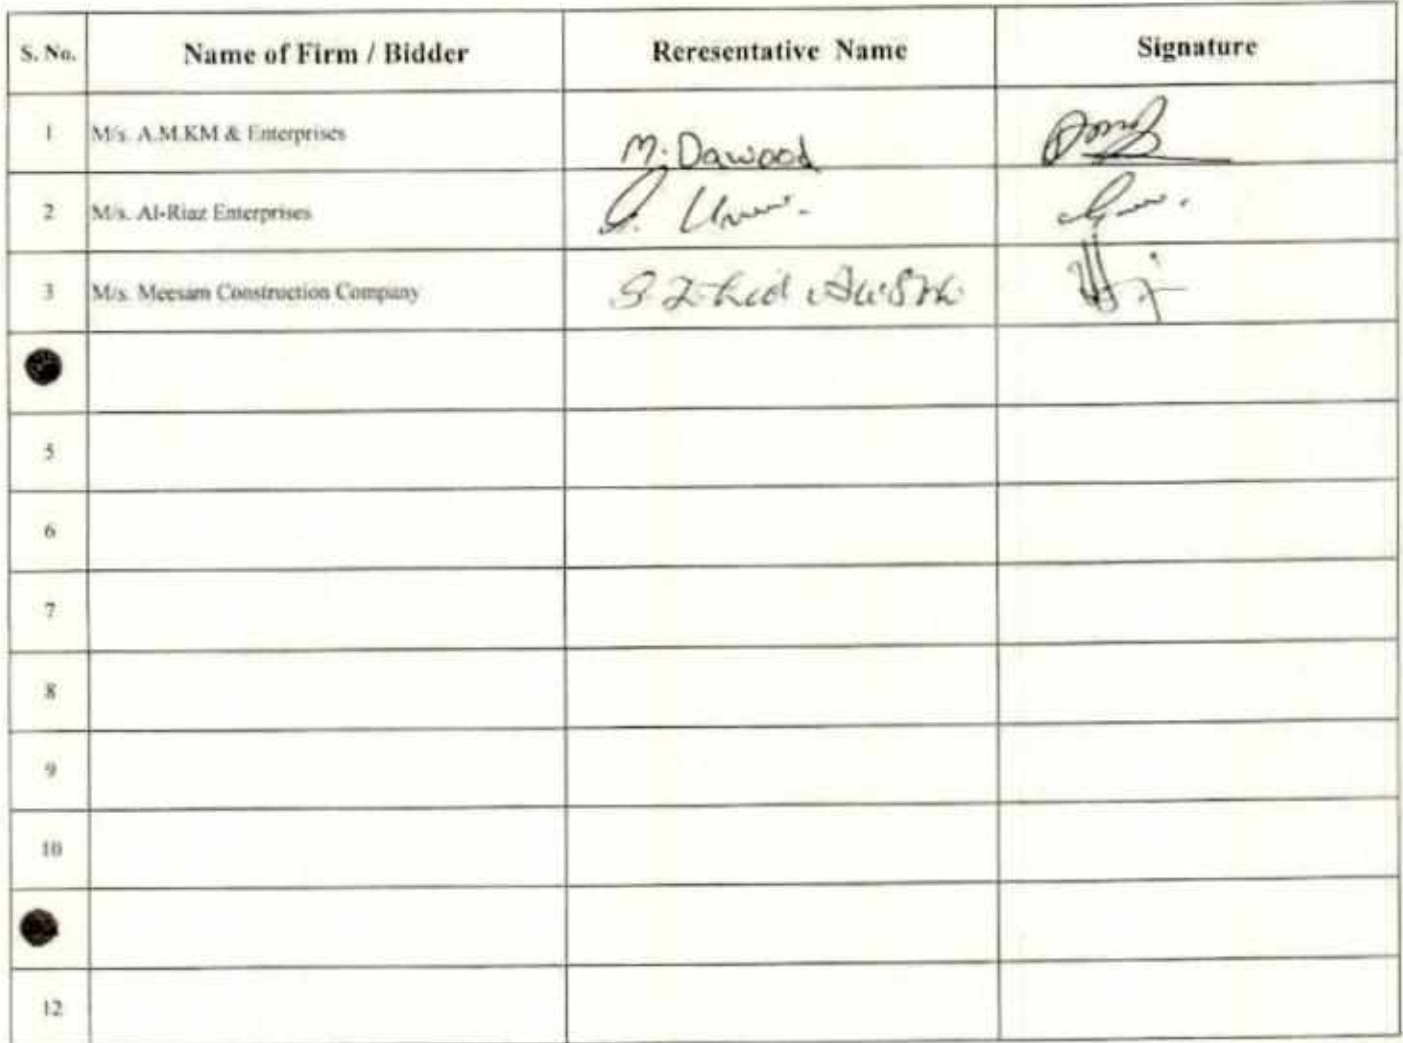 S. No. Name of Firm / Bidder Reresentative Name Signature
1 M/s. A.M.KM & Enterprises M. Dawood
2 M/s. Al-Riaz Enterprises
3 M/s. Meesam Construction Company
5
6
7
8
9
10
12